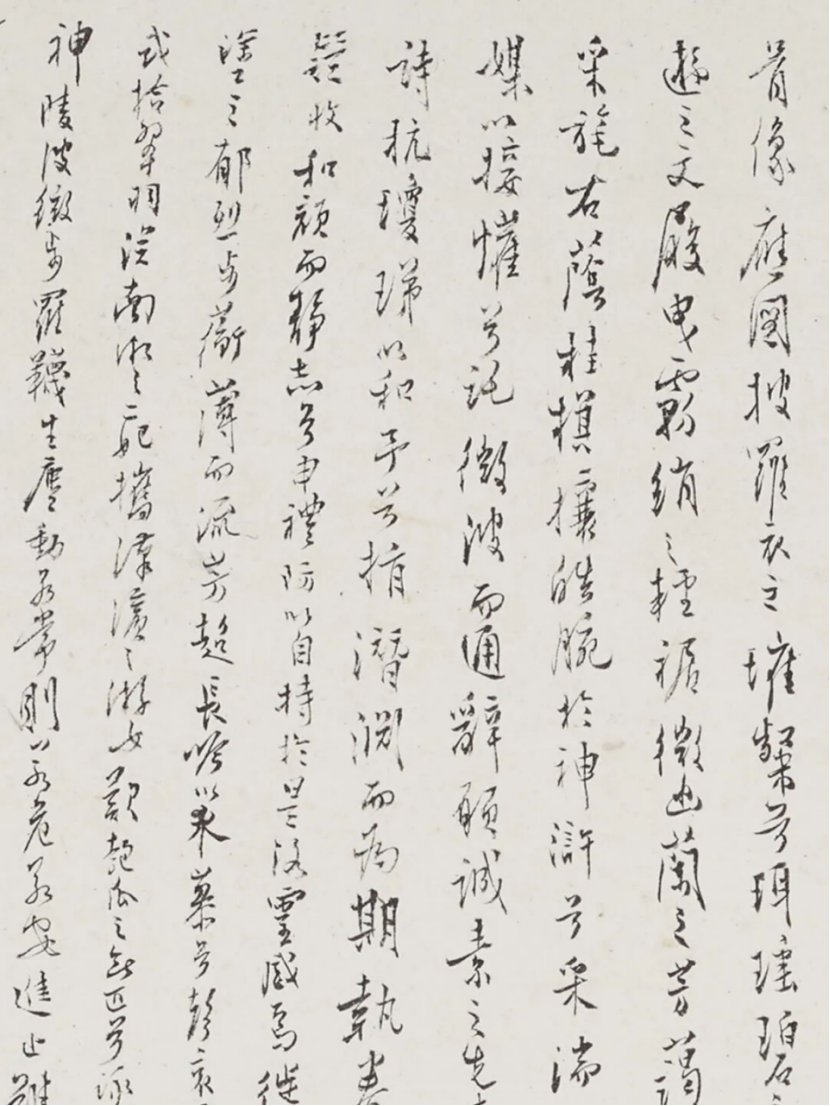 骨像應圖披羅衣之璀粲兮珥瑤碧之
遊之文履曳霧綃之輕裾微幽蘭之芳藹
采旄右蔭桂旗攘皓腕於神滸兮采湍
媒以接懽兮託微波而通辭願誠素之先
詩抗瓊珶以和予兮指潛淵而為期執眷
疑收和顏而靜志兮申禮防以自持於是洛靈感焉徙
塗之郁烈步蘅薄而流芳超長吟以永慕兮聲哀
或拾翠羽從南湘之二妃攜漢濱之游女歎匏瓜之無匹兮詠
神陵波微步羅襪生塵動無常則若危若安進止難